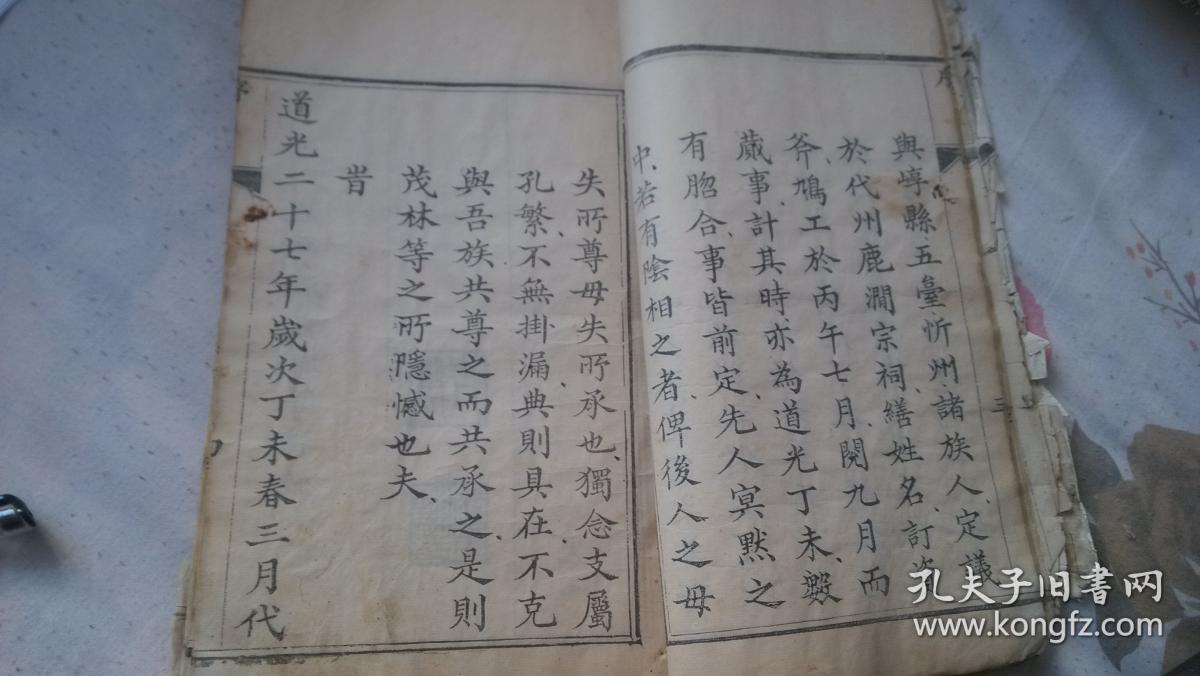 序
三
與崞縣五臺忻州諸族人、定議
於代州鹿澗宗祠、繕姓名、訂資
斧、鳩工於丙午七月、閱九月而
蕆事、計其時、亦為道光丁未、數
有脗合、事皆前定、先人冥默之
中、若有陰相之者、俾後人之毋
失所尊、毋失所承也、獨念支屬
孔繁、不無掛漏、典則具在、不克
與吾族共尊之、而共承之、是則
茂林等之所隱憾也夫、
旹
道光二十七年歲次丁未春三月代
孔夫子旧书网
www.kongfz.com